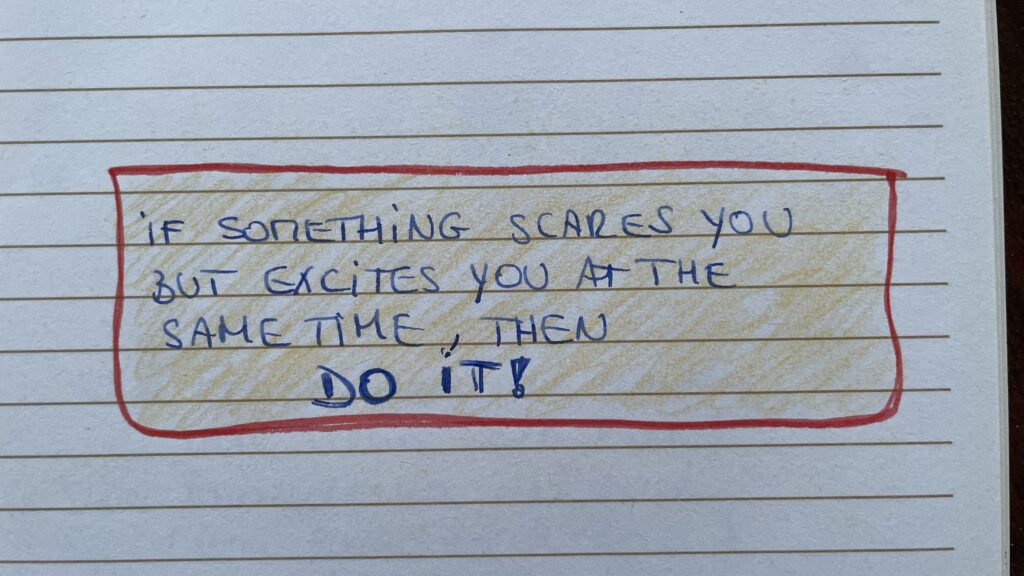 iF SOMETHiNG SCARES YOU
BUT EXCiTES YOU AT THE
SAME TIME, THEN
DO iT!